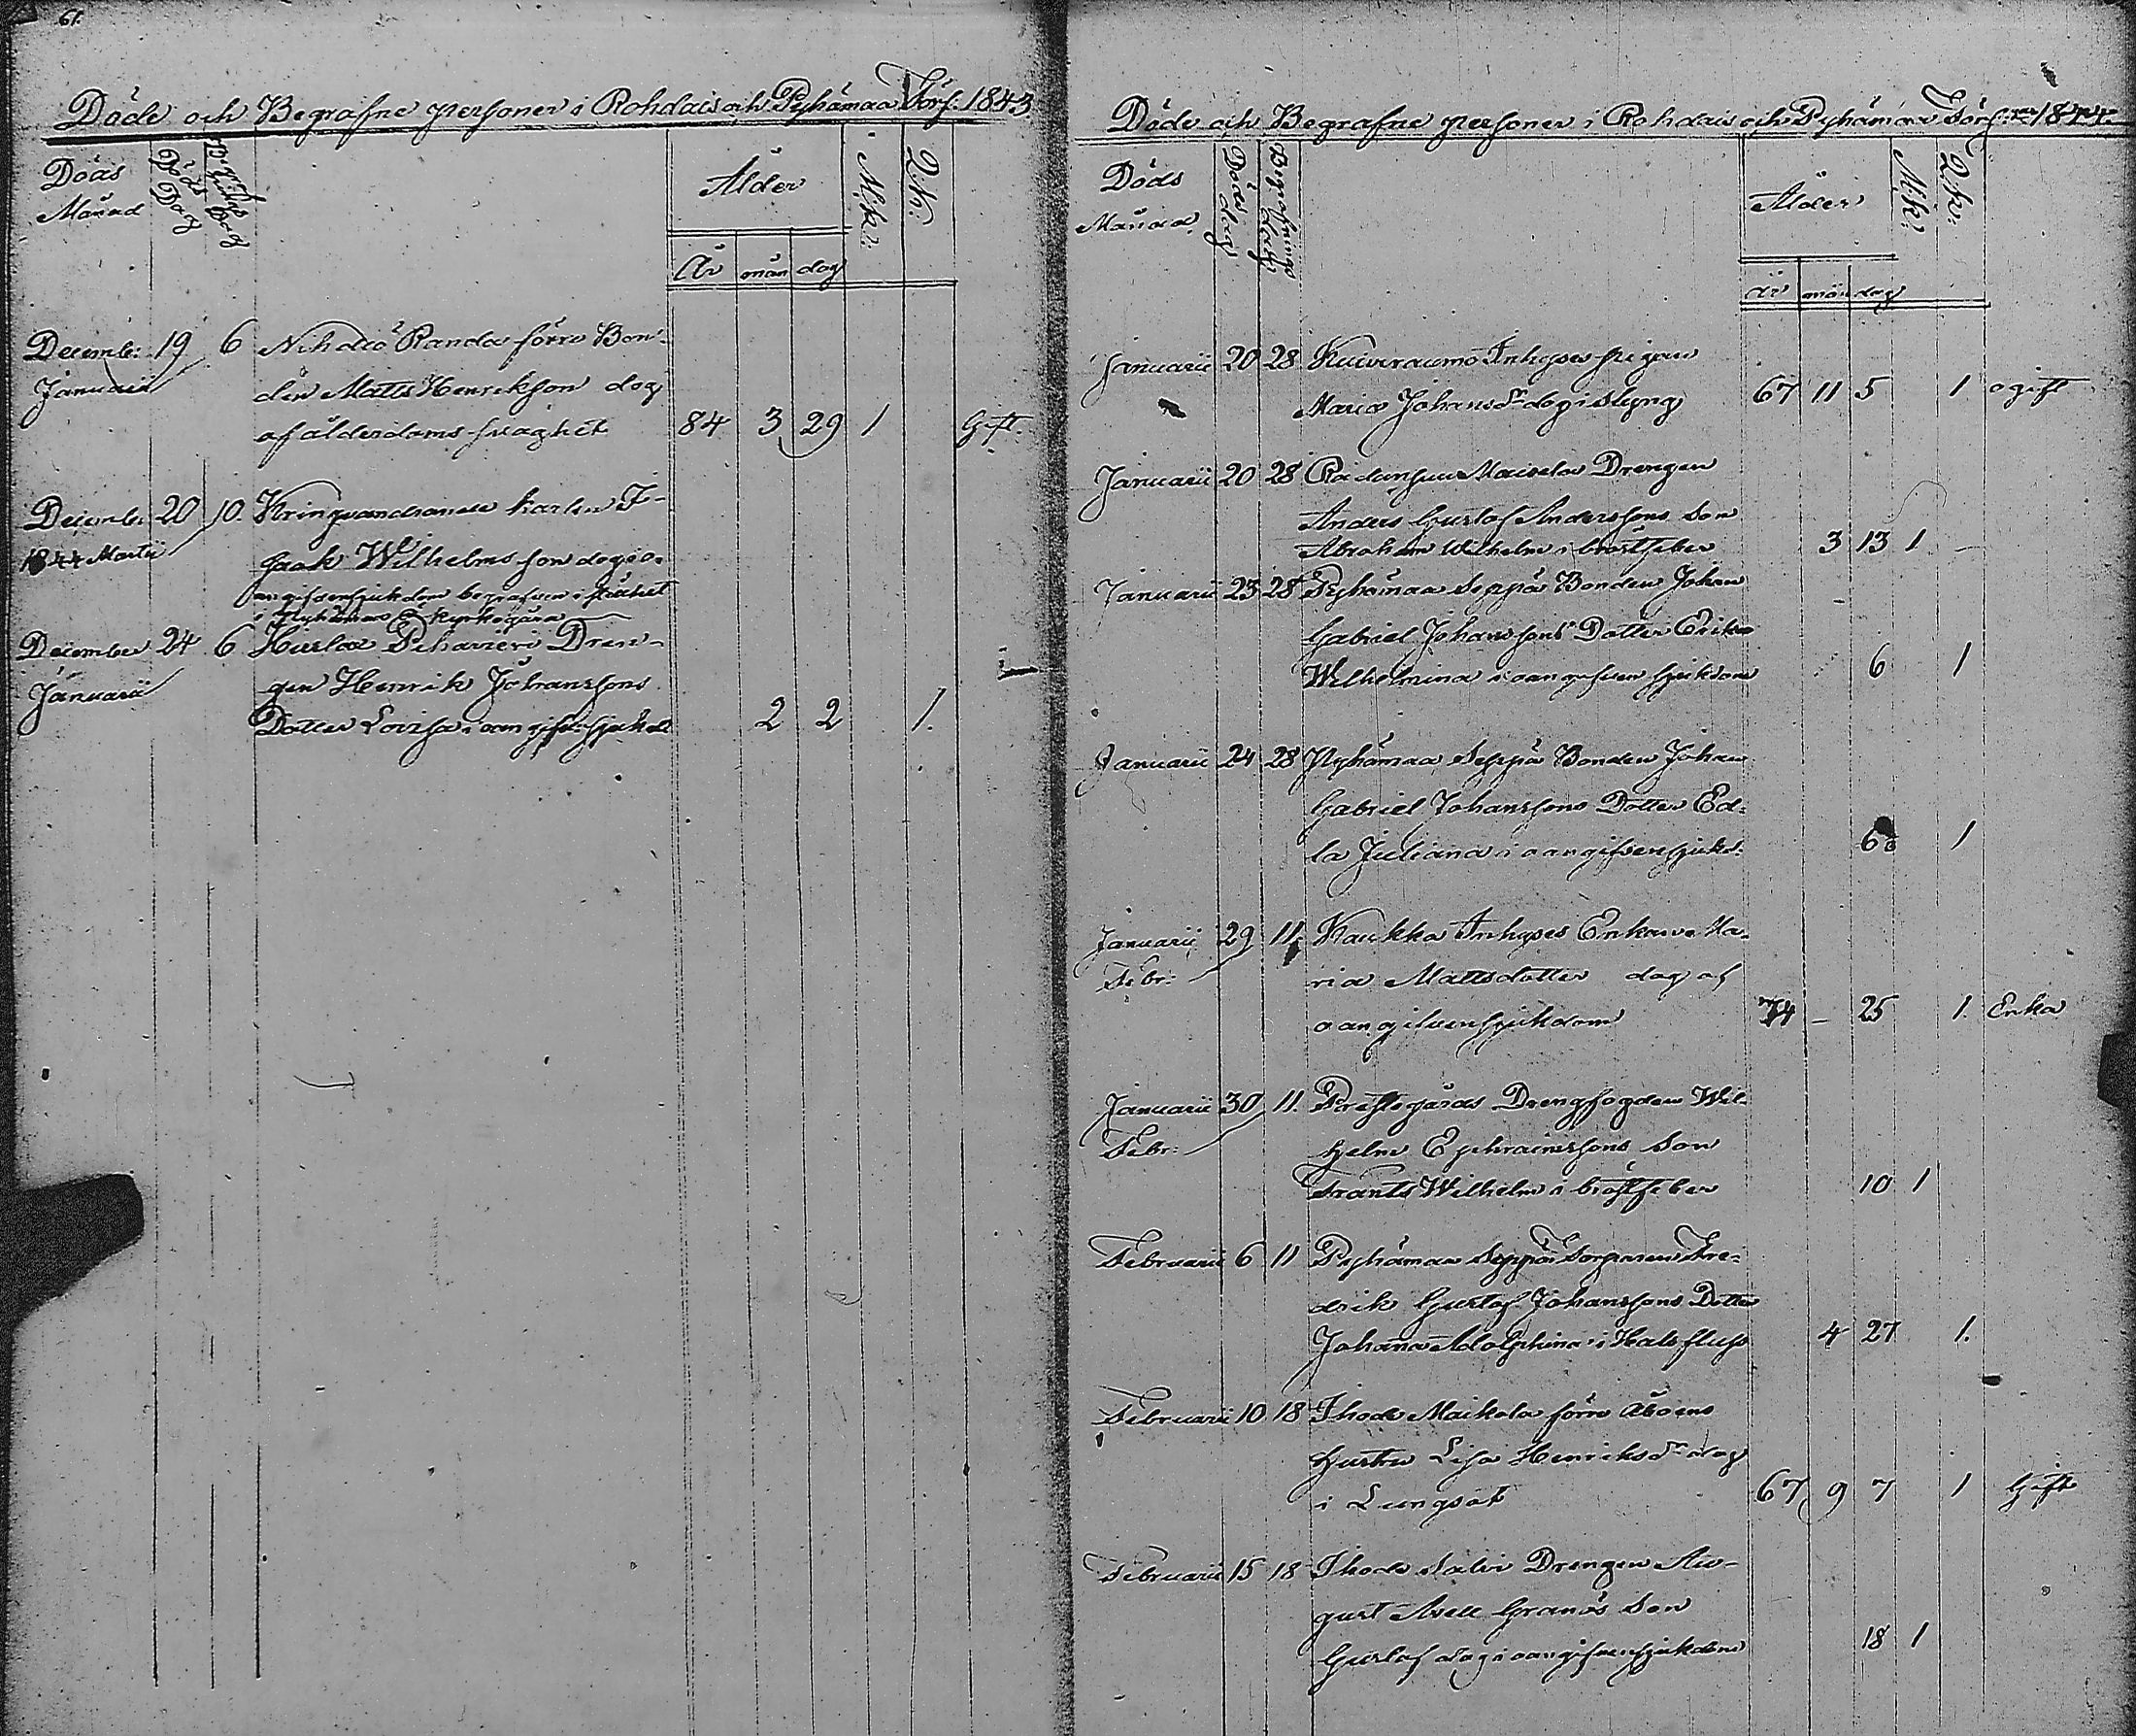 61.
Döde och Begrafne personer i Rohdais och Pyhämaa Förs: 1843
Döds Månad
Döds Dag
Begrafnings Dag
Ålder
År mån dag
M.k:
Q.k:
December 19 6 Nihdiö Randa förre Bon-
Januarii den Matts Henrikson dog
af ålderdoms svaghet 84 3 29 1 Gift.
December 20 10. Kringvandrande karlen I-
1844 Martii saak Wilhelmsson dog i o-
angifven sjukdom begrafven i
i Pyhämaa kyrkogård
December 24 6 Hirsla Dren-
Januarii gen Henrik Johanssons
Dotter Lovisa i oangifv: sjukd: 2 2 1.
Döde och Begrafne personer i Rohdais och Pyhämaa Förs: 1844.
Döds Månad.
Döds dag
Begrafnings dag
Ålder
år mån dag
M.k:
Q.k:
Januarii 20 28 Kuivraumo Inhyses pigan
Maria Johansdr dog i styng 67 11 5 1 ogift
Januarii 20 28 Drengen
Anders Gustaf Anderssons Son
Abraham Wilhelm i bröstfeber 3 13 1 -
Januarii 23 28 Pyhämaa Seppä Bonden Johan
Gabriel Johanssons Dotter Erika
Wilhelmina i oangifven sjukdom 6 1
Januarii 24 28 Pyhämaa Seppä Bonden Johan
Gabriel Johanssons Dotter Ed-
la Juliana i oangifven sjukd: 6 1
Januarii 29 11. Kaukka Inhyses Enkan Ma-
Febr: ria Mattsdotter dog af
oangifven sjukdom 74 - 25 1. Enka
Januarii 30 11. Prestegårds Drengfogden Wil-
Febr: helm Ephraimssons Son
Frants Wilhelm i bröstfeber 10 1
Februarii 6 11 Pyhämaa Seppä Torparen Fre-
drik Gustaf Johanssons Dotter
Johanna Adolphina i Halsfluss 4 27 1.
Februarii 10 18 Ihode Maikola förre Åboens
hustru Lisa Henriksdr dog
i Lungsot 67 9 7 1 Gift
Februarii 15 18 Ihode Salvi Drengen Au-
gust Axell Granös Son
Gustaf dog i oangifven sjukdom 18 1